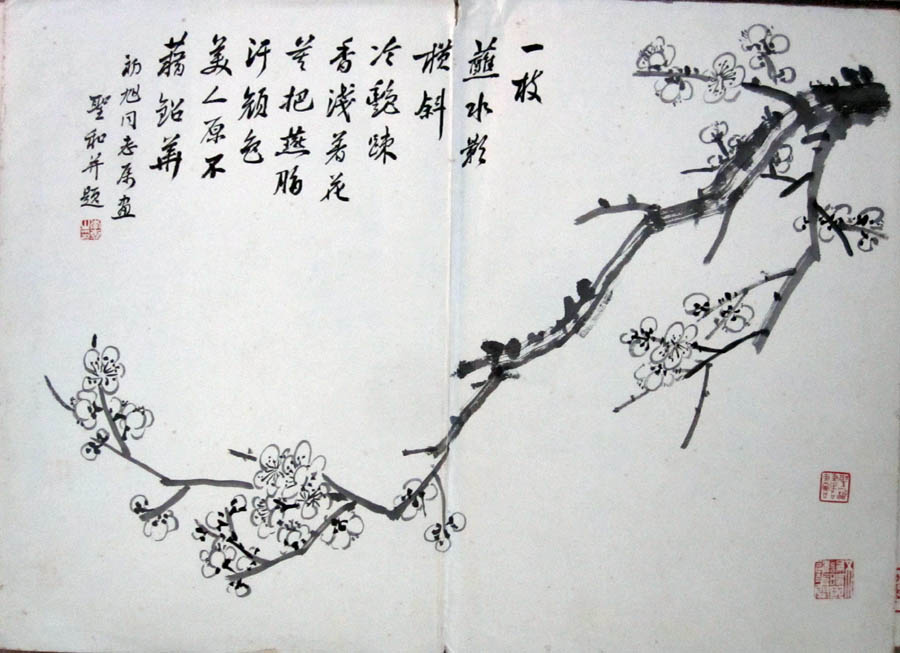 一枝
蘸水影
横斜
冷艷疎
香淺著花
莫把燕脂
汙顔色
美人原不
藉鉛華
初旭同志屬畫
聖和并題